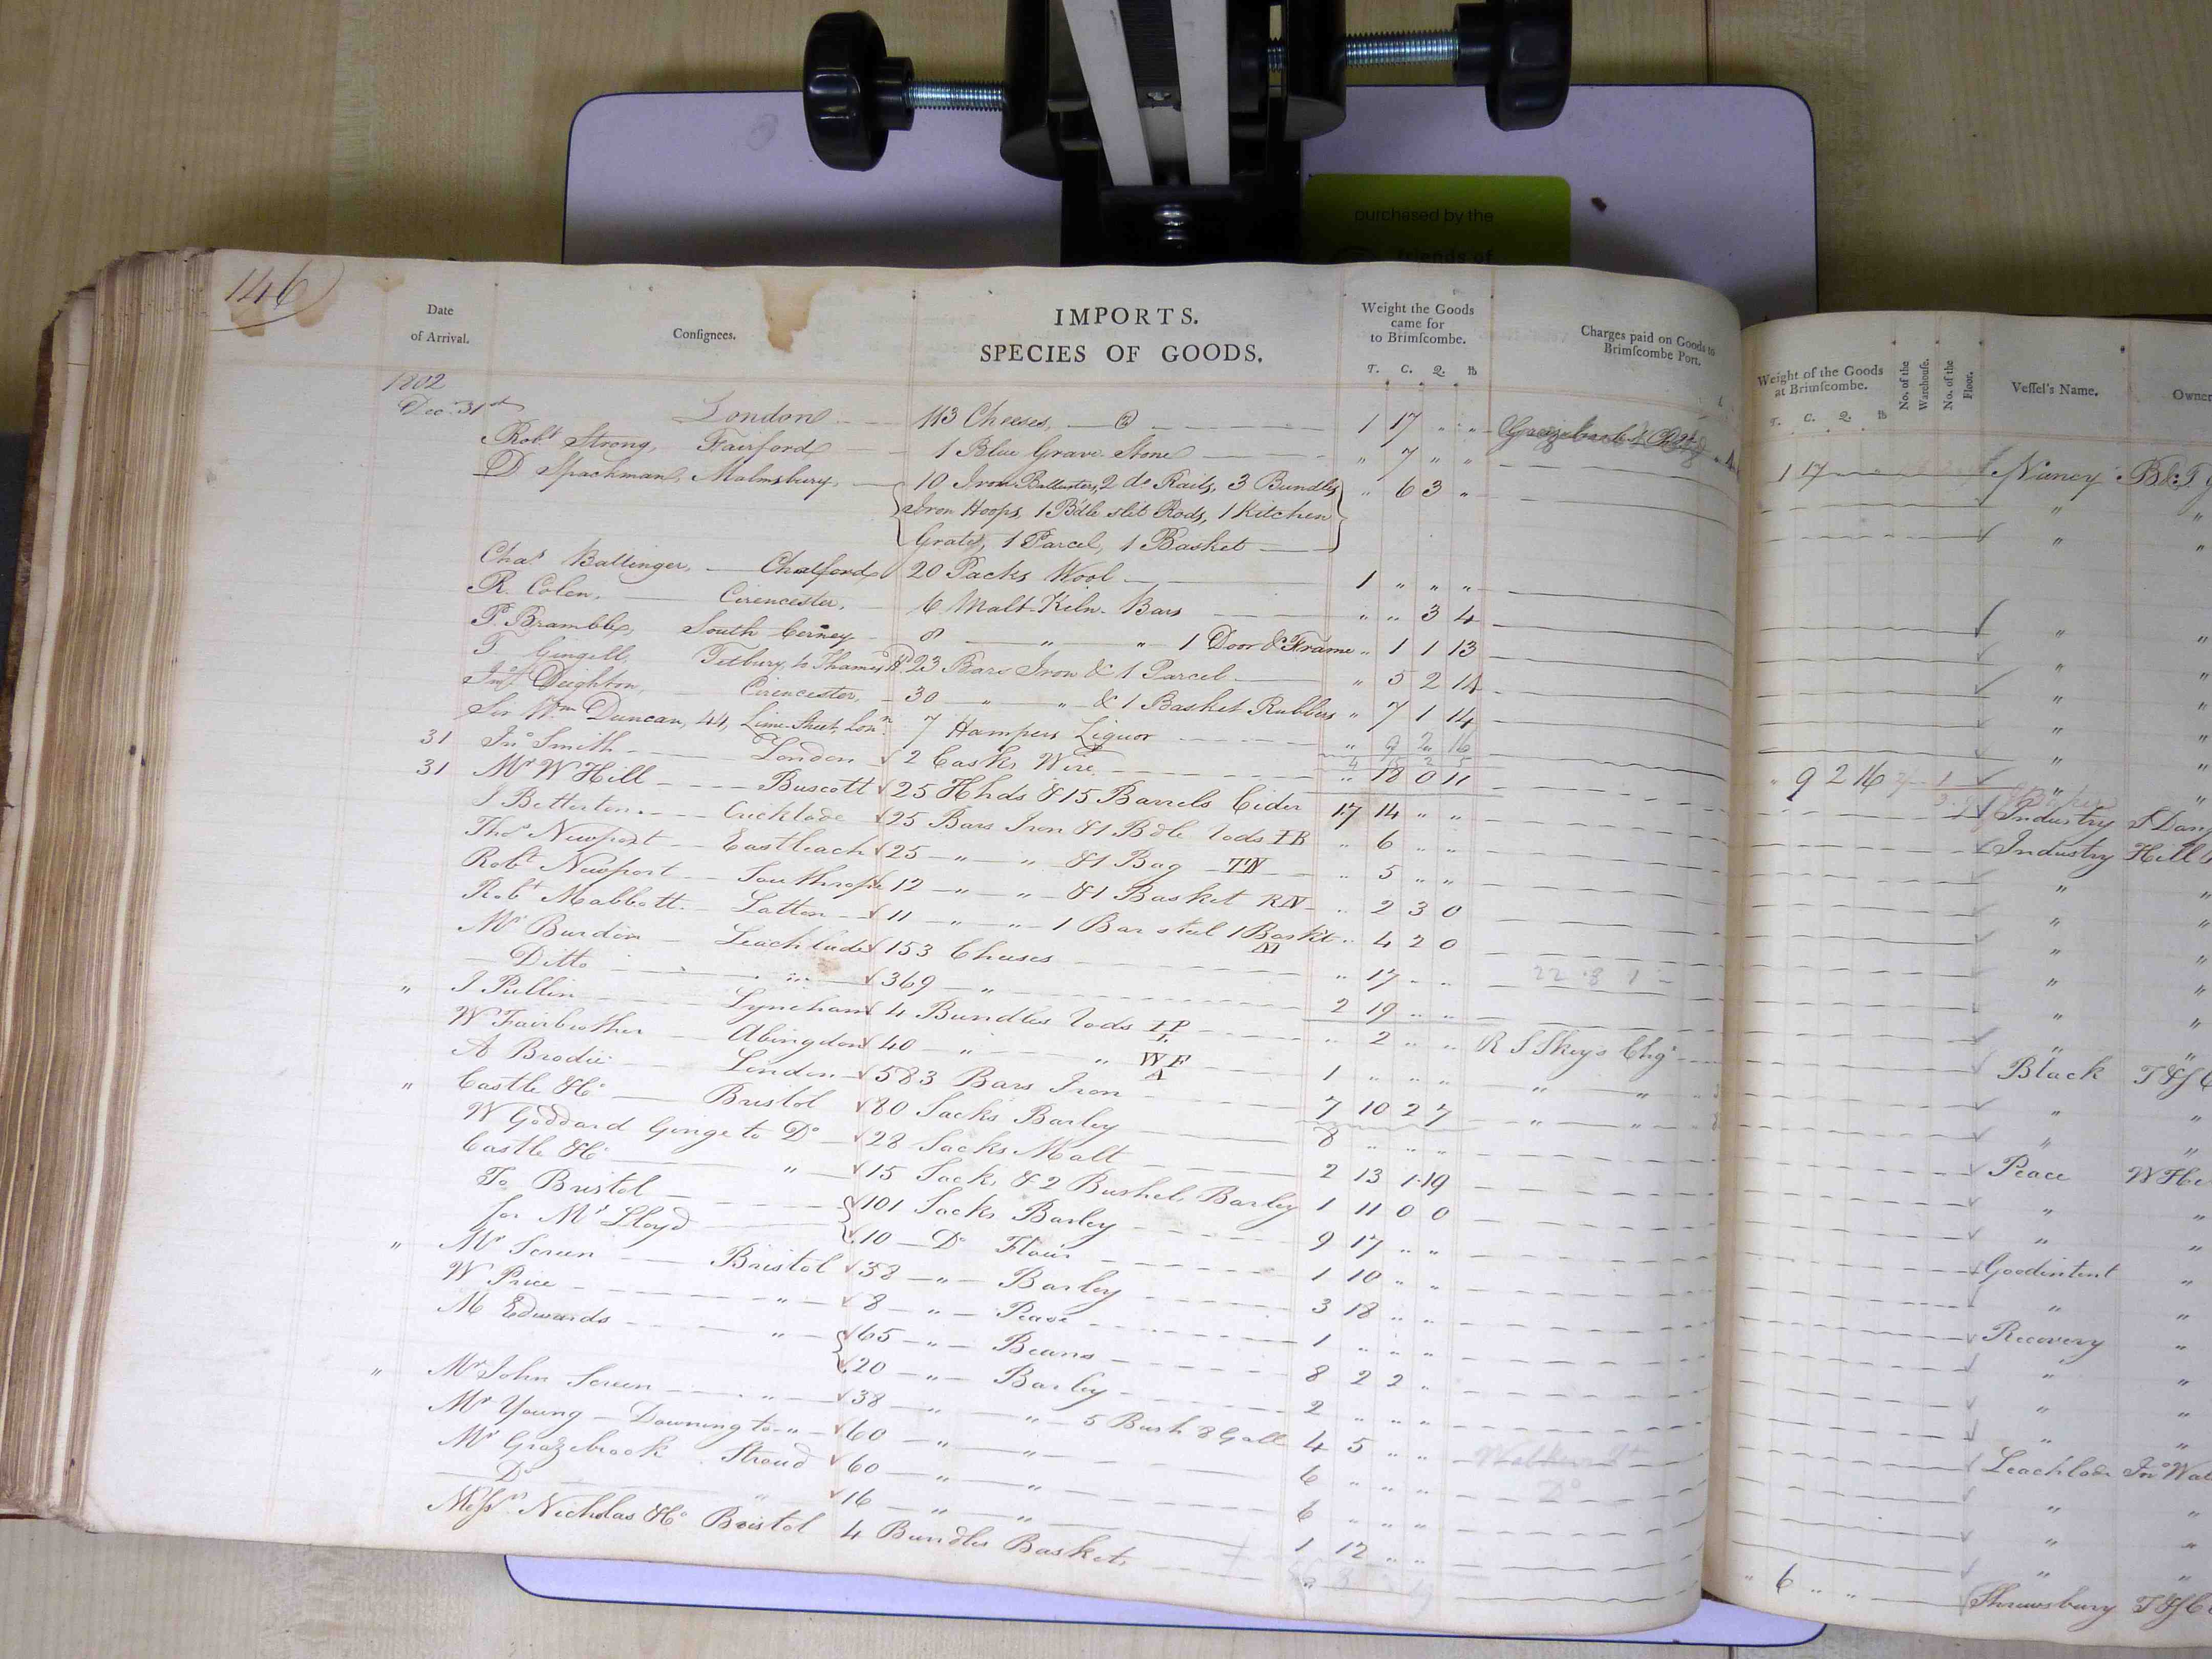 purchased by the
friends of
146
Date of Arrival. Consignees. IMPORTS. SPECIES OF GOODS. Weight the Goods came for to Brimscombe. T. C. Q. lb Charges paid on Goods to Brimscombe Port.
Weight of the Goods at Brimscombe. T. C. Q. lb No. of the Warehouse. No. of the Floor. Vessel's Name. Owner
1802
Dec. 31st London 113 Cheeses, 1 17 " " 1 17 Nancy
Robt Strong, Fairford 1 Blue Grave Stone " 7 " " "
D Spackman, Malmsbury, 10 Iron Ballusters, 2 do Rails, 3 Bundles " 6 3 " "
Iron Hoops, 1 Bdle slit Rods, 1 Kitchen
Grate, 1 Parcel, 1 Basket
Chas Ballinger, Chalford 20 Packs Wool 1 " " " "
R. Colen, Cirencester, 6 Malt-Kiln Bars " " 3 4 "
P. Bramble, South Cerney 8 " " 1 Door & Frame " 1 1 13 "
T. Gingell, Tetbury, to Thames Hd 23 Bars Iron & 1 Parcel " 5 2 14 "
Jno Deighton, Cirencester, 30 " " & 1 Basket Rubbers " 7 1 14 "
Sir Wm Duncan, 44, Lime-Street, Lonn 7 Hampers Liquor " 9 2 16 " 9 2 16 "
31 Jno Smith London 2 Casks Wire " 18 0 11 Industry
31 Mr W Hill Buscott 25 Hhds & 15 Barrels Cider 17 14 " " Industry Hill
J Betterton Cricklade 25 Bars Iron & 1 Bdle Rods IB " 6 " " "
Thos Newport Eastleach 25 " " & 1 Bag TN " 5 " " "
Robt Newport Southrop 12 " " & 1 Basket RN " 2 3 0 "
Robt Mabbott Latton 11 " " 1 Bar steel 1 Baskt " 4 2 0 "
Mr Burdon Leachlade 153 Cheeses " 17 " " 22 8 1 "
Ditto " 369 " 2 19 " " "
" J Pullin Lyneham 4 Bundles Rods IP L " 2 " " R S Skey's Chgs Black
W Fairbrother Abingdon 40 " " WF A 1 " " " " " "
A Brodie London 583 Bars Iron 7 10 2 7 " " "
" Castle & Co Bristol 80 Sacks Barley 8 " " " Peace
W Goddard Ginge to Do 28 Sacks Malt 2 13 1 19 "
Castle & Co " 15 Sacks & 2 Bushels Barley 1 11 0 0 "
To Bristol 101 Sacks Barley 9 17 " " Goodintent
for Mr Lloyd 10 Do Flour 1 10 " " "
" Mr Screen Bristol 38 " Barley 3 18 " " Recovery
W Price " 8 " Pease 1 " " " "
M Edwards " 65 " Beans 8 2 2 " "
20 " Barley 2 " " " "
" Mr John Screen " 38 " " 5 Bush 8 Gall 4 5 " " Leachlade
Mr Young Downing to " 60 " " 6 " " " Do "
Mr Grazebrook Stroud 60 " " 6 " " " "
Do " 16 " " 1 12 " " "
Messrs Nicholas & Co Bristol 4 Bundles Baskets " 6 " " Shrewsbury